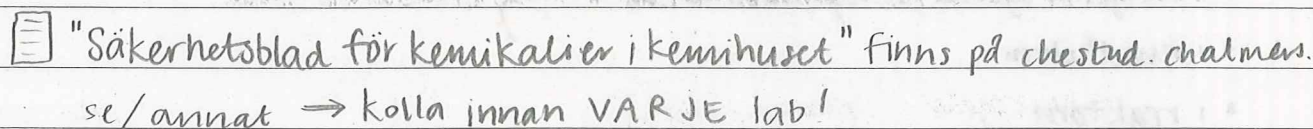 "Säkerhetsblad för kemikalier i kemihuset" finns på chestud.chalmers.
se/annat ⇒ kolla innan VARJE lab!